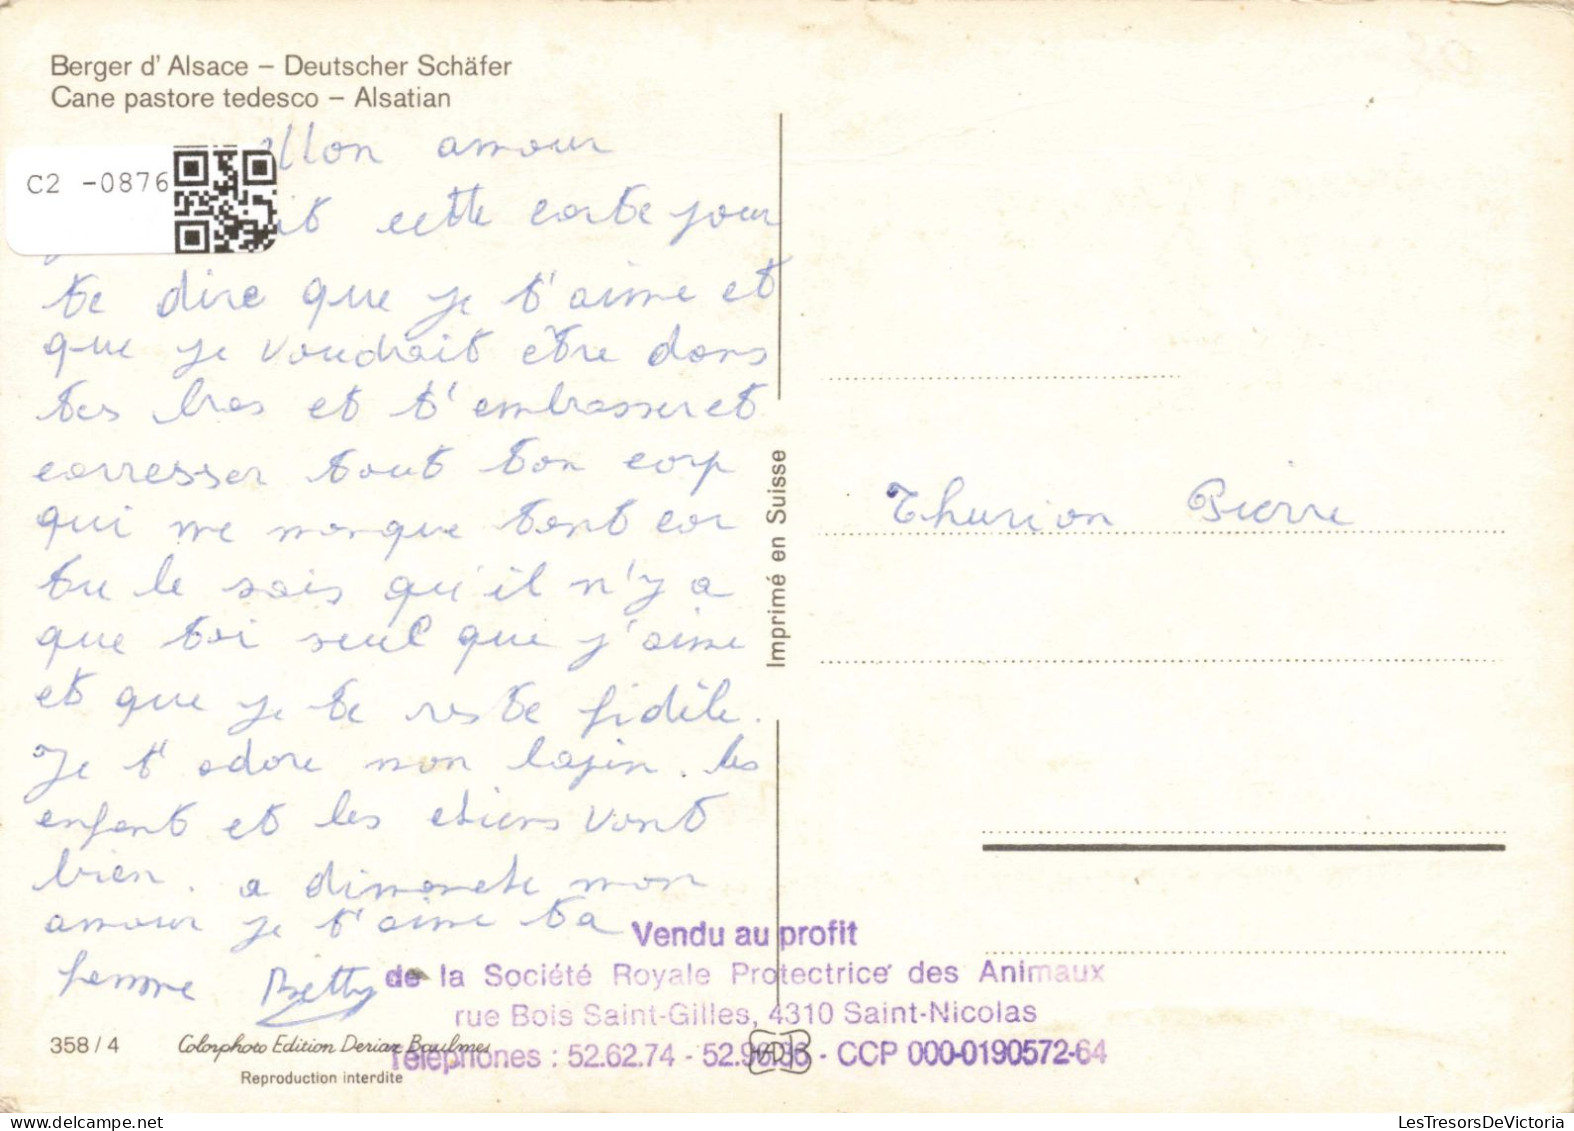 Berger d'Alsace – Deutscher Schäfer
Cane pastore tedesco – Alsatian
C2 -0876
Mon amour
cette carte pour
te dire que je t'aime et
que je voudrait être dans
tes bras et t'embrasser et
carresser tout ton corp
qui me manque tant car
tu le sais qu'il n'y a
que toi seul que j'aime
et que je te reste fidèle.
Je t'adore mon lapin. les
enfant et les chiens vont
bien. a dimanche mon
amour je t'aime ta
femme Betty
Imprimé en Suisse
Thurion Pierre
Vendu au profit
de la Société Royale Protectrice des Animaux
rue Bois Saint-Gilles, 4310 Saint-Nicolas
Téléphones : 52.62.74 - 52.96.36 - CCP 000-0190572-64
358/4
Colorphoto Edition Deriaz Baulmes
Reproduction interdite
LesTresorsDeVictoria